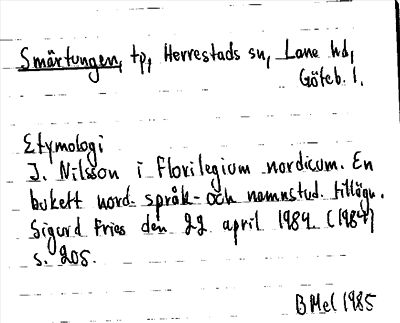 Smärtungen, tp, Herrestads sn, Lane hd,
Göteb. l.
Etymologi
J. Nilsson i Florilegium nordicum. En
bukett nord. språk- och namnstud. tillägn.
Sigurd Fries den 22 april 1984. (1984)
s. 205.
BMel 1985